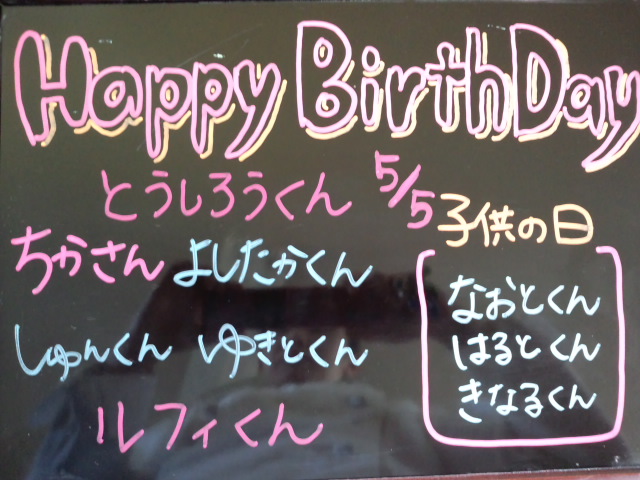 Happy BirthDay
とうしろうくん
ちかさん よしたかくん
しゅんくん ゆきとくん
ルフィくん
5/5 子供の日
なおとくん
はるとくん
きなるくん